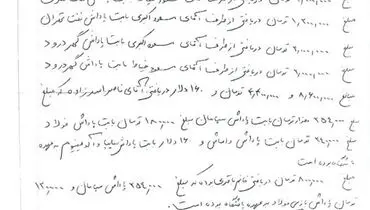 مبلغ ۱٬۲۰۰٬۰۰۰ تومان دریافتی از طرف آقای مسعود اکبری بابت پاداش نفت تهران
مبلغ ۲٬۰۰۰٬۰۰۰ تومان دریافتی از طرف آقای مسعود اکبری بابت پاداش گهر درود
مبلغ ۶٬۰۰۰٬۰۰۰ تومان دریافتی از طرف آقای مسعود بابت پاداش گهر درود
مبلغ ۸٬۶۰۰٬۰۰۰ و ۴٬۴۰۰٬۰۰۰ تومان و ۱۶ دلار دریافتی آقای ناصر اسدزاده که مبلغ
۲۵۴٬۰۰۰ هزار تومان بابت پاداش سپاهان مبلغ ۱۸۰٬۰۰۰ تومان بابت پاداش فولاد
مبلغ تومان بابت پاداش داماش و ۱۶ دلار بابت پاداش سایپا و آلومینیوم به عهده
باشگاه بوده است
مبلغ ۸۰۰٬۰۰۰ تومان دریافتی که مبلغ ۲۵۴٬۰۰۰ پاداش سپاهان و ۱۲۰٬۰۰۰
تومان پاداش بازی فولاد به عهده باشگاه بوده است.